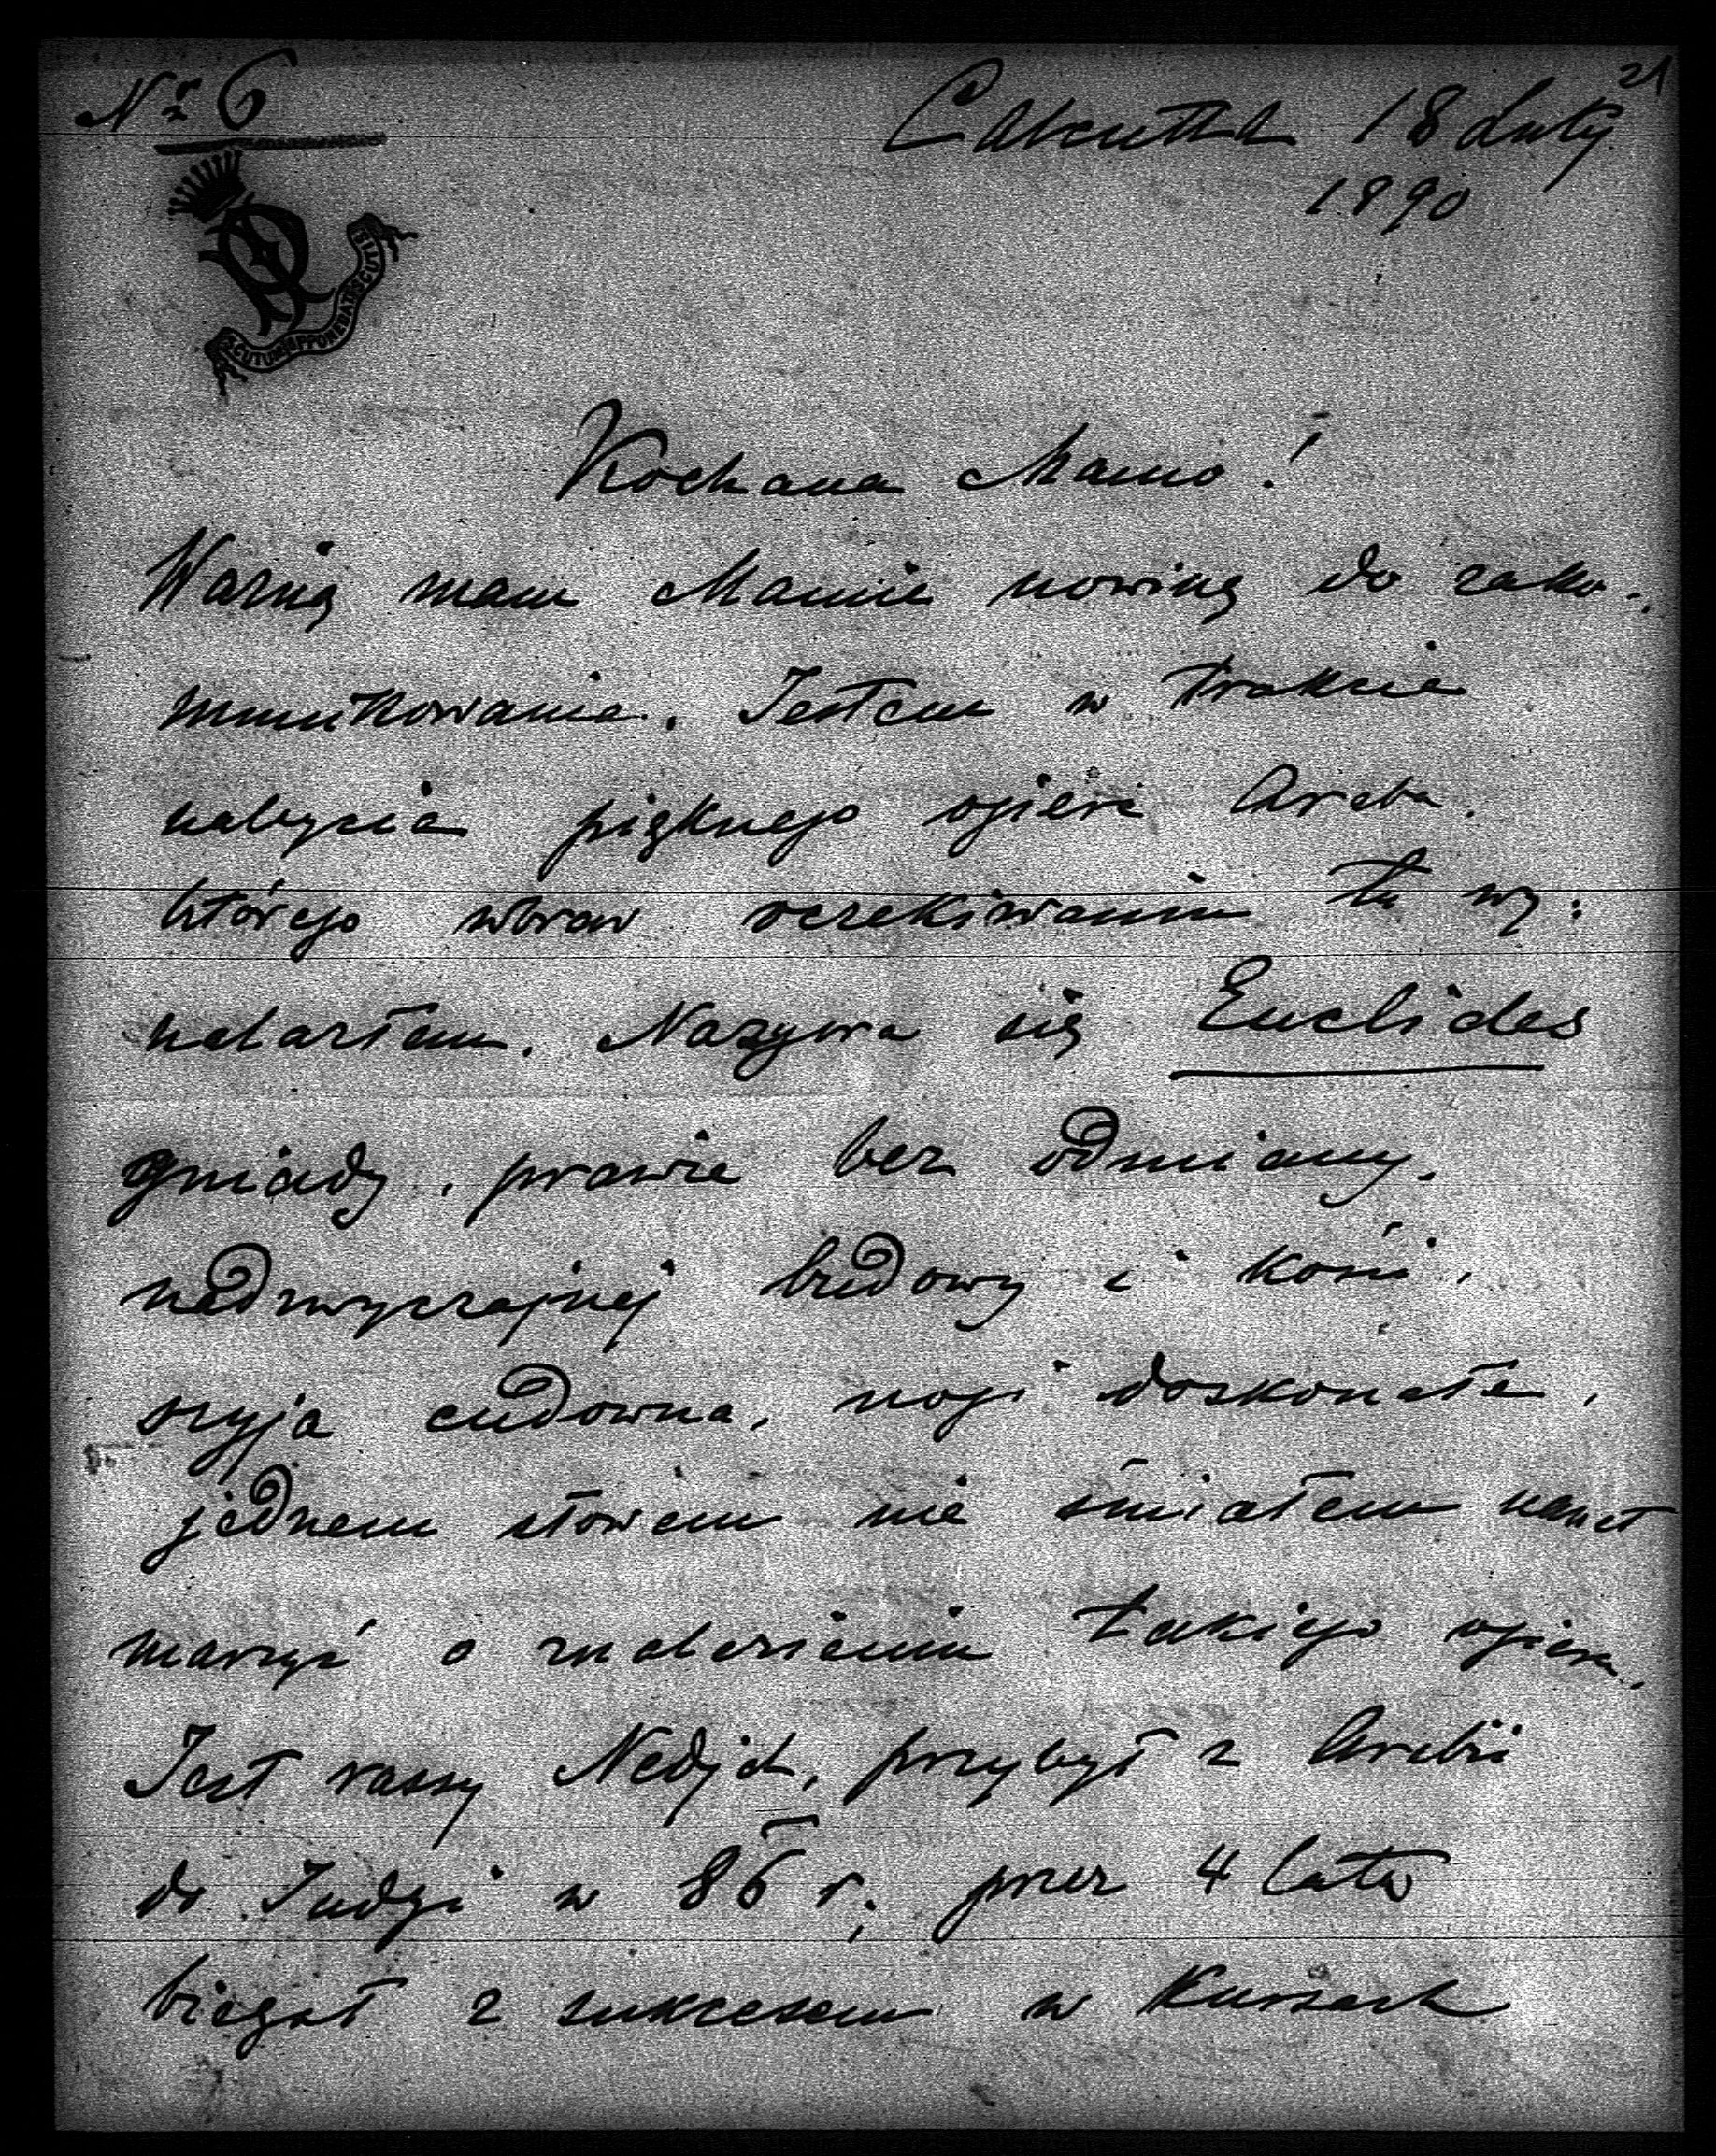 21
Nr 6
Calcutta 18 Luty
1890
SCUTUM OPPONEBAT SCUTIS
Kochana Mamo!
Ważną mam Mamie nowinę do zako-
munikowania. Jestem w trakcie
nabycia pięknego ogiera Araba.
którego wbrew oczekiwaniu tu wy:
nalazłem. Nazywa się Euclides
gniady, prawie bez odmiany,
nadzwyczajnej budowy i kości,
szyja cudowna, nogi doskonałe,
jednem słowem nie śmiałem nawet
marzyć o znalezieniu takiego ogiera.
Jest rassy Nedjed, przybył z Arabii
do Indyi w 86 r; przez 4 lata
biegał z sukcesem w Kursach